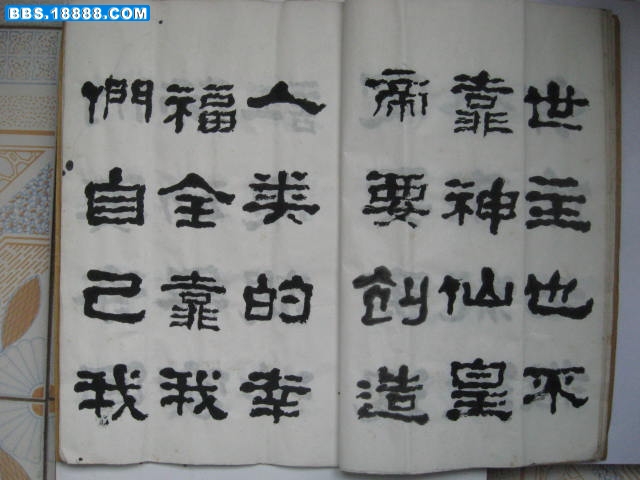 BBS.18888.COM
世主也不
靠神仙皇
帝要創造
人类的幸
福全靠我
們自己我